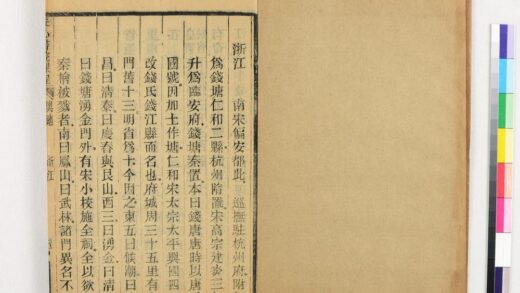 浙江
南宋偏安都此 巡撫駐杭州府附
爲錢塘仁和二縣杭州隋置宋高宗建炎三
升爲臨安府錢塘秦置本曰錢唐唐時以唐
國號因加土作塘仁和宋太宗太平興國四
改錢氏錢江縣而名也府城周三十五里有
門舊十三明省爲十今因之東五曰候潮曰
昌曰清泰曰慶春與艮山西三曰湧金曰清
曰錢塘湧金門外有宋小校施全祠全以欲
秦檜被戮者南曰鳳山曰武林諸門異名不
浙江